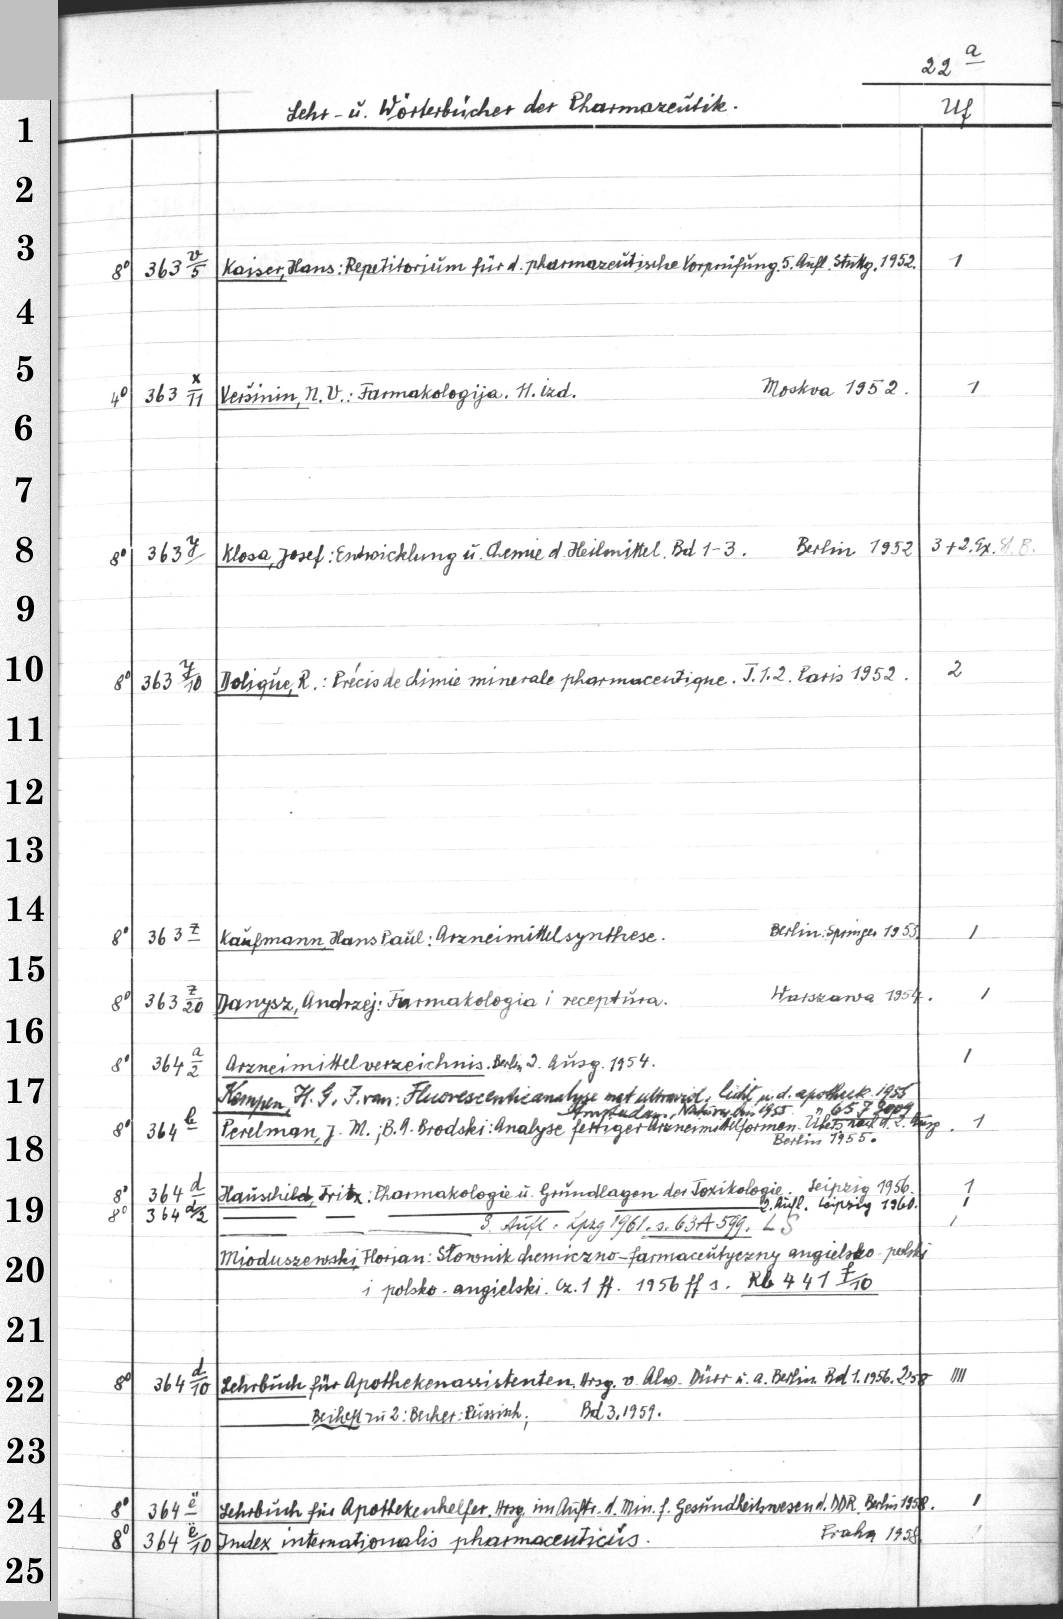 22 a
Lehr- u. Wörterbücher der Pharmazeutik. Uf
1
2
3
8° 363 v/5 Kaiser, Hans: Repetitorium für d. pharmazeutische Vorprüfung. 5. Aufl. Stuttg. 1952. 1
4
5
4° 363 x/11 Veršinin, N. V.: Farmakologija. 11. izd. Moskva 1952. 1
6
7
8
8° 363 y Klosa, Josef: Entwicklung u. Chemie d. Heilmittel. Bd 1-3. Berlin 1952 3 + 2. Ex. St. B.
9
10
8° 363 y/10 Dolique, R.: Précis de chimie minerale pharmaceutique. T. 1.2. Paris 1952. 2
11
12
13
14
8° 363 z Kaufmann, Hans Paul: Arzneimittelsynthese. Berlin: Springer 1953. 1
15
8° 363 z/20 Danysz, Andrzej: Farmakologia i receptura. Warszawa 1954. 1
16
8° 364 a/2 Arzneimittelverzeichnis. Berlin 2. Ausg. 1954. 1
17
Kempen, H. G. F. van: Fluorescenticanalyse met ultraviol. licht i. d. apotheek. 1955
Amsterdam. 1955
8° 364 b Perelman, J. M.; B. A. Brodski: Analyse fertiger Arzneimittelformen. Übers. nach d. 2. Ausg. 1
Berlin 1955.
18
8° 364 d Hauschild, Fritz: Pharmakologie u. Grundlagen der Toxikologie. Leipzig 1956. 1
19
8° 364 d/2 2. Aufl. Leipzig 1960. 1
3. Aufl. Lpzg 1961. s. 63 A 599. LS 1
Mioduszewski, Florian: Słownik chemiczno-farmaceutyczny angielsko-polski
20
i polsko-angielski. Cz. 1 ff. 1956 ff s. Rb 441 f/10
21
8° 364 d/10 Lehrbuch für Apothekenassistenten. Hrsg. v. Alw. Dürr u. a. Berlin. Bd 1. 1956. 2.58 IIII
22
Beiheft zu 2: Becher: Russisch, Bd 3. 1959.
23
8° 364 ë Lehrbuch für Apothekenhelfer. Hrsg. im Auftr. d. Min. f. Gesundheitswesen d. DDR. Berlin 1958. 1
24
8° 364 ë/10 Index internationalis pharmaceuticus. Praha 1958. 1
25